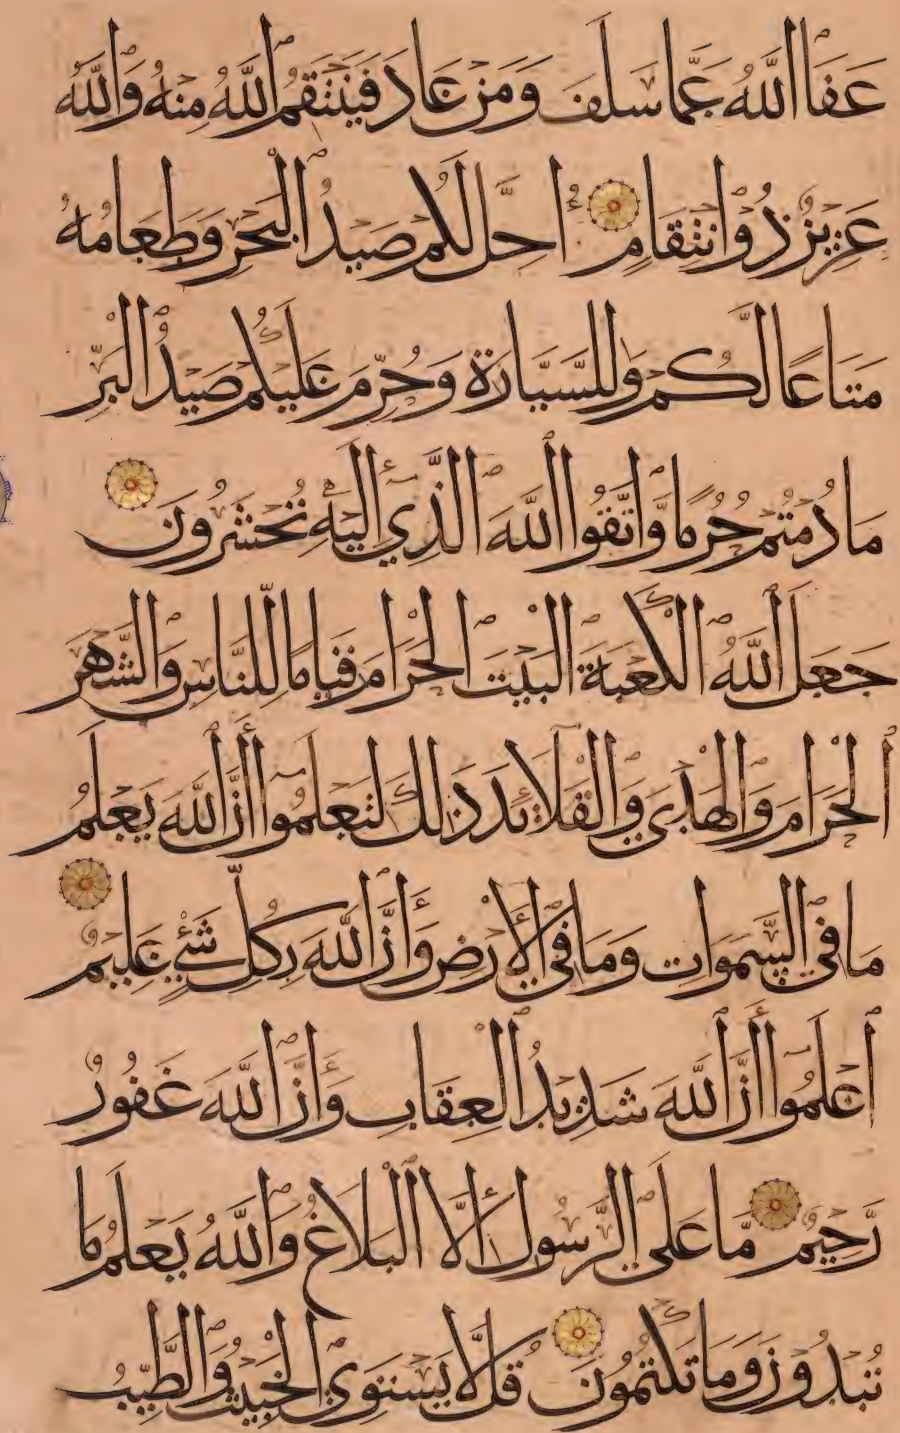 عَفَا اللَّهُ عَمَّا سَلَفَ وَمَنْ عَادَ فَيَنْتَقِمُ اللَّهُ مِنْهُ وَاللَّهُ
عَزِيزٌ ذُو انْتِقَامٍ أُحِلَّ لَكُمْ صَيْدُ الْبَحْرِ وَطَعَامُهُ
مَتَاعًا لَّكُمْ وَلِلسَّيَّارَةِ وَحُرِّمَ عَلَيْكُمْ صَيْدُ الْبَرِّ
مَا دُمْتُمْ حُرُمًا وَّاتَّقُوا اللَّهَ الَّذِي إِلَيْهِ تُحْشَرُونَ
جَعَلَ اللَّهُ الْكَعْبَةَ الْبَيْتَ الْحَرَامَ قِيَامًا لِّلنَّاسِ وَالشَّهْرَ
الْحَرَامَ وَالْهَدْيَ وَالْقَلَائِدَ ذَلِكَ لِتَعْلَمُوا أَنَّ اللَّهَ يَعْلَمُ
مَا فِي السَّمَوَاتِ وَمَا فِي الْأَرْضِ وَأَنَّ اللَّهَ بِكُلِّ شَيْءٍ عَلِيمٌ
اعْلَمُوا أَنَّ اللَّهَ شَدِيدُ الْعِقَابِ وَأَنَّ اللَّهَ غَفُورٌ
رَّحِيمٌ مَّا عَلَى الرَّسُولِ إِلَّا الْبَلَاغُ وَاللَّهُ يَعْلَمُ مَا
تُبْدُونَ وَمَا تَكْتُمُونَ قُل لَّا يَسْتَوِي الْخَبِيثُ وَالطَّيِّبُ